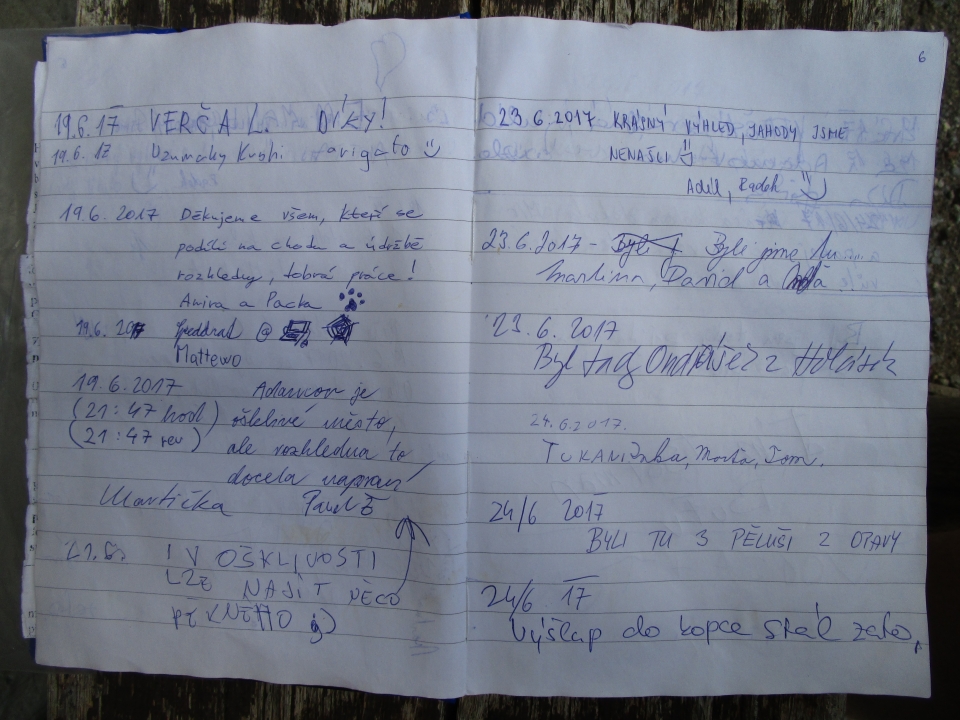 19.6.17 VERČA L. DÍKY!
19.6.17 Uzumaky Kushi arigato
19.6.2017 Děkujeme všem, kteří se
podílí na chodu a údržbě
rozhledny, dobrá práce!
a Packa
19.6.2017 @
Mattewo
19.6.2017 je
(21:47 hod) ošklivé město,
(21:47 rev) ale rozhledna to
docela napraví
Martička Pavel
21.6. I V OŠKLIVOSTI
LZE NAJÍT NĚCO
PĚKNÉHO ;)
6
23.6.2017 KRÁSNÝ VÝHLED, JAHODY JSME
NENAŠLI
Adél, Radek
23.6.2017 - Byli jsme tu
Martina, David a
23.6.2017
Byl tady Ondřášek z
24.6.2017.
TUKANI Marťa, Tom.
24/6 2017
BYLI TU 3 PĚLUŠI Z OTAVY
24/6 17
Výšlap do kopce stál zato,